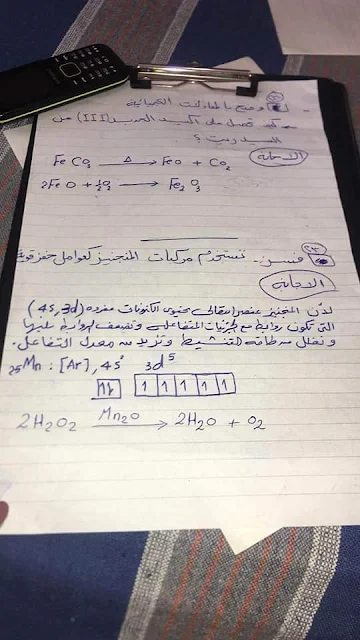 وضح بالمعادلات الكيميائية
كيف تحصل على أكسيد الحديد (III) من
السيدريت ؟
الاجابة
FeCO₃ —Δ→ FeO + CO₂
2FeO + ½O₂ ⟶ Fe₂O₃
٢٣ فسر - تستخدم مركبات المنجنيز كعوامل حفز قوية
الاجابة
لأن المنجنيز عنصر انتقالى يحتوى الكترونات مفرده (4s, 3d)
التى تكون روابط مع جزيئات المتفاعلات وتضعف الروابط
وتقلل من طاقة التنشيط وتزيد من معدل التفاعل.
₂₅Mn : [Ar], 4s² 3d⁵
↑↓ ↑ ↑ ↑ ↑ ↑
2H₂O₂ —Mn₂O→ 2H₂O + O₂